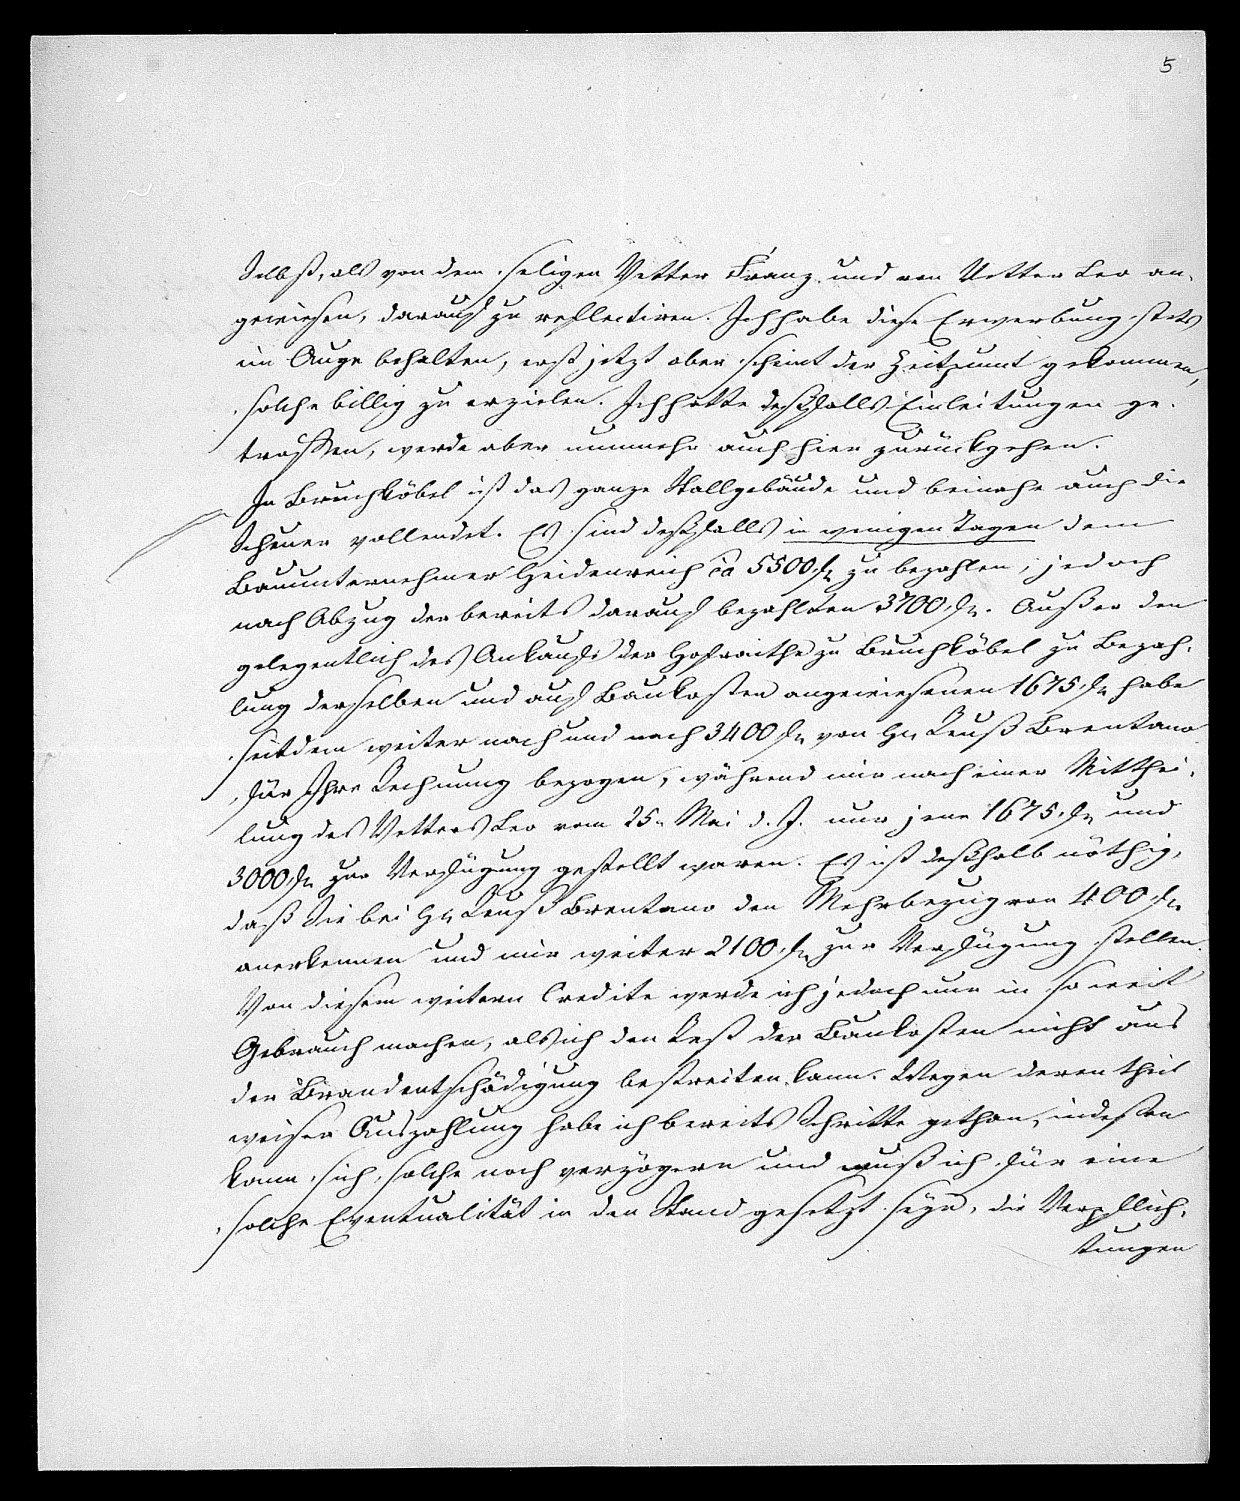 5
Selbst, als von dem seligen Vetter Franz und von Vetter Leo an-
gewiesen, darauf zu reflectiren. Ich habe diese Erwerbung stets
im Auge behalten, erst jetzt aber scheint der Zeitpunct gekommen,
solche billig zu erzielen. Ich hatte deßfalls Einleitungen ge-
troffen, werde aber nunmehr auch hier zurückgehen.
In Bruchköbel ist das ganze Stallgebäude und beinahe auch die
Scheuer vollendet. Es sind deßfalls in wenigen Tagen dem
Bauunternehmer Heidenreich ca 5500 fl zu bezahlen, jedoch
nach Abzug der bereits darauf bezahlten 3700 fl. Außer den
gelegentlich des Ankaufs der Hofraithe zu Bruchköbel zu Bezah-
lung derselben und auf Baukosten angewiesenen 1675 fl habe
seitdem weiter nach und nach 3400 fl von Hn Reuß Brentano
für Ihre Rechnung bezogen, während mir nach einer Mitthei-
lung des Vetters Leo vom 25. Mai d. J. nur jene 1675 fl und
3000 fl zur Verfügung gestellt waren. Es ist deßhalb nöthig,
daß Sie bei Hn Reuß Brentano den Mehrbezug von 400 fl
anerkennen und mir weiter 2100 fl zur Verfügung stellen.
Von diesem weitern Credite werde ich jedoch nur in so weit
Gebrauch machen, als ich den Rest der Baukosten nicht aus
der Brandentschädigung bestreiten kann. Wegen deren theil
weiser Auszahlung habe ich bereits Schritte gethan, indessen
kann sich solche noch verzögern und muß ich für eine
solche Eventualität in den Stand gesetzt seyn, die Verpflich-
tungen